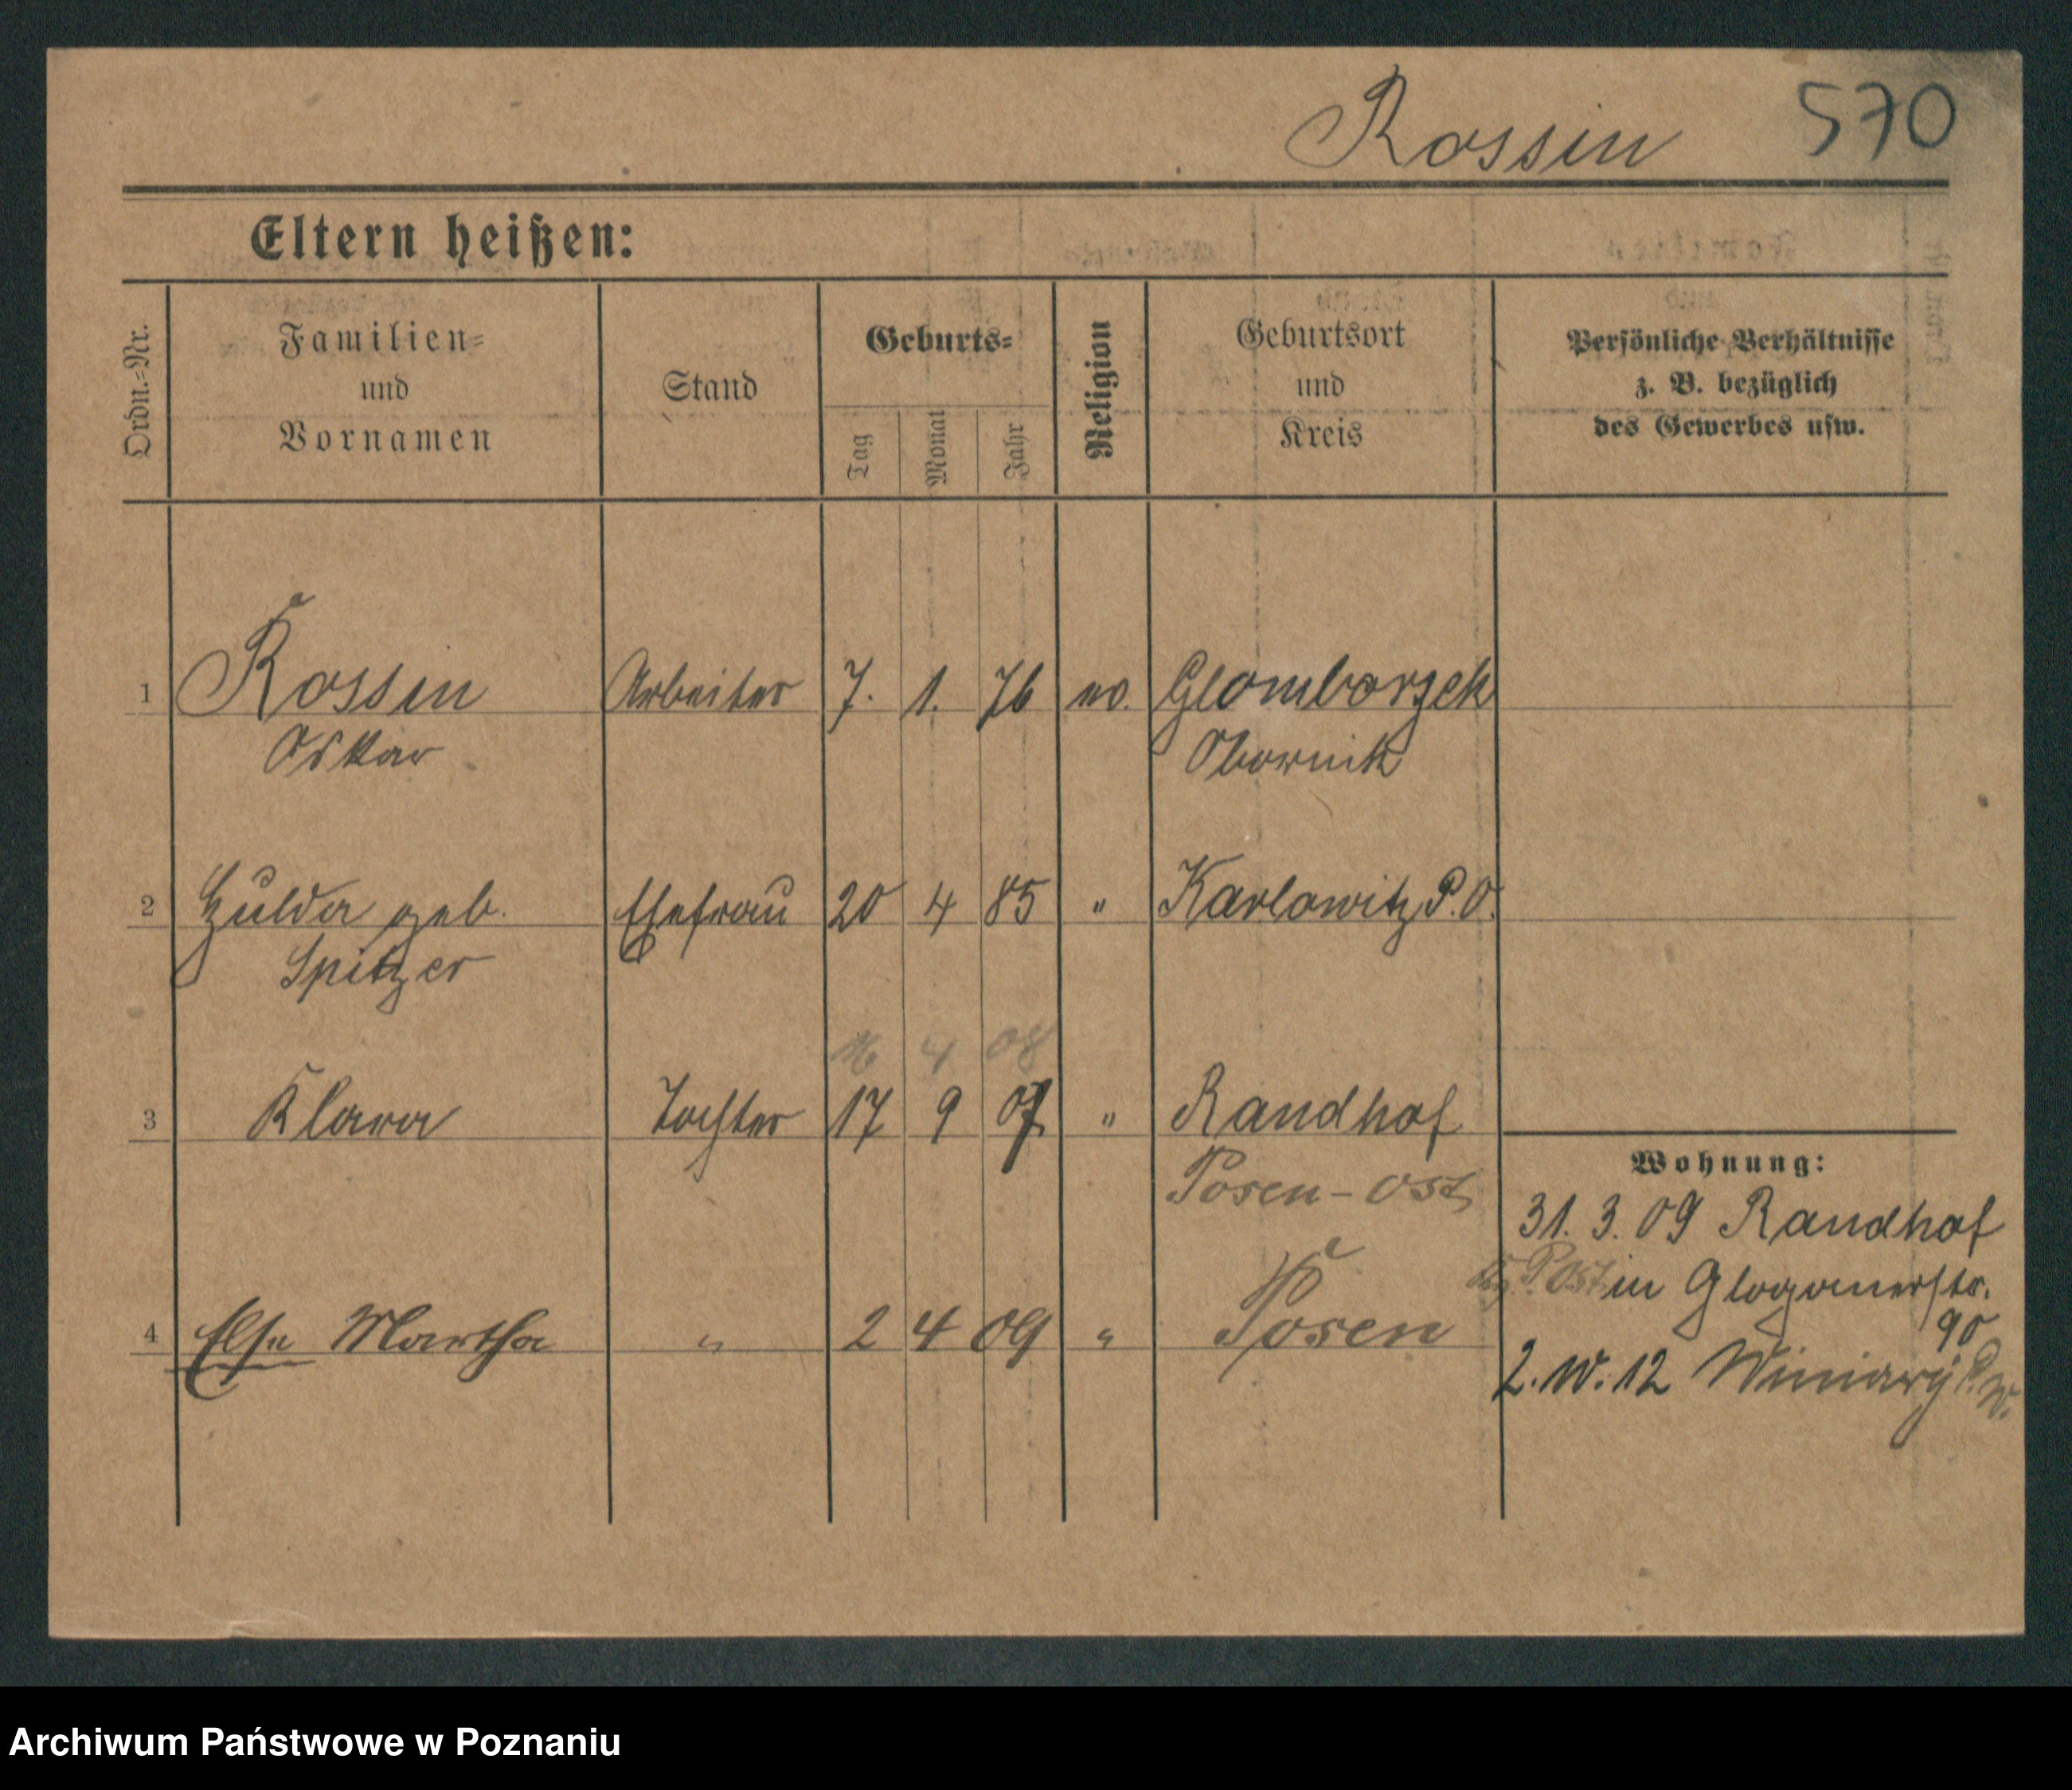 Rossin 570
Eltern heißen:
Ordn.=Nr.
Familien=
und
Vornamen
Stand
Geburts=
Tag
Monat
Jahr
Religion
Geburtsort
und
Kreis
Persönliche Verhältnisse
z. B. bezüglich
des Gewerbes usw.
1 Rossin Arbeiter 7. 1. 76 ev. Glomborzek
Oskar Obornik
2 Hulda geb. Ehefrau 20 4 85 " Karlowitz P.O.
Spitzer
16 4 08
3 Klara Tochter 17 9 07 " Randhof
Posen-Ost
4 Else Martha " 2 4 09 " Posen
Wohnung:
31. 3. 09 Randhof
P. Ost in Glogauerstr.
90
2. IV. 12 Winiary P. W.
Archiwum Państwowe w Poznaniu